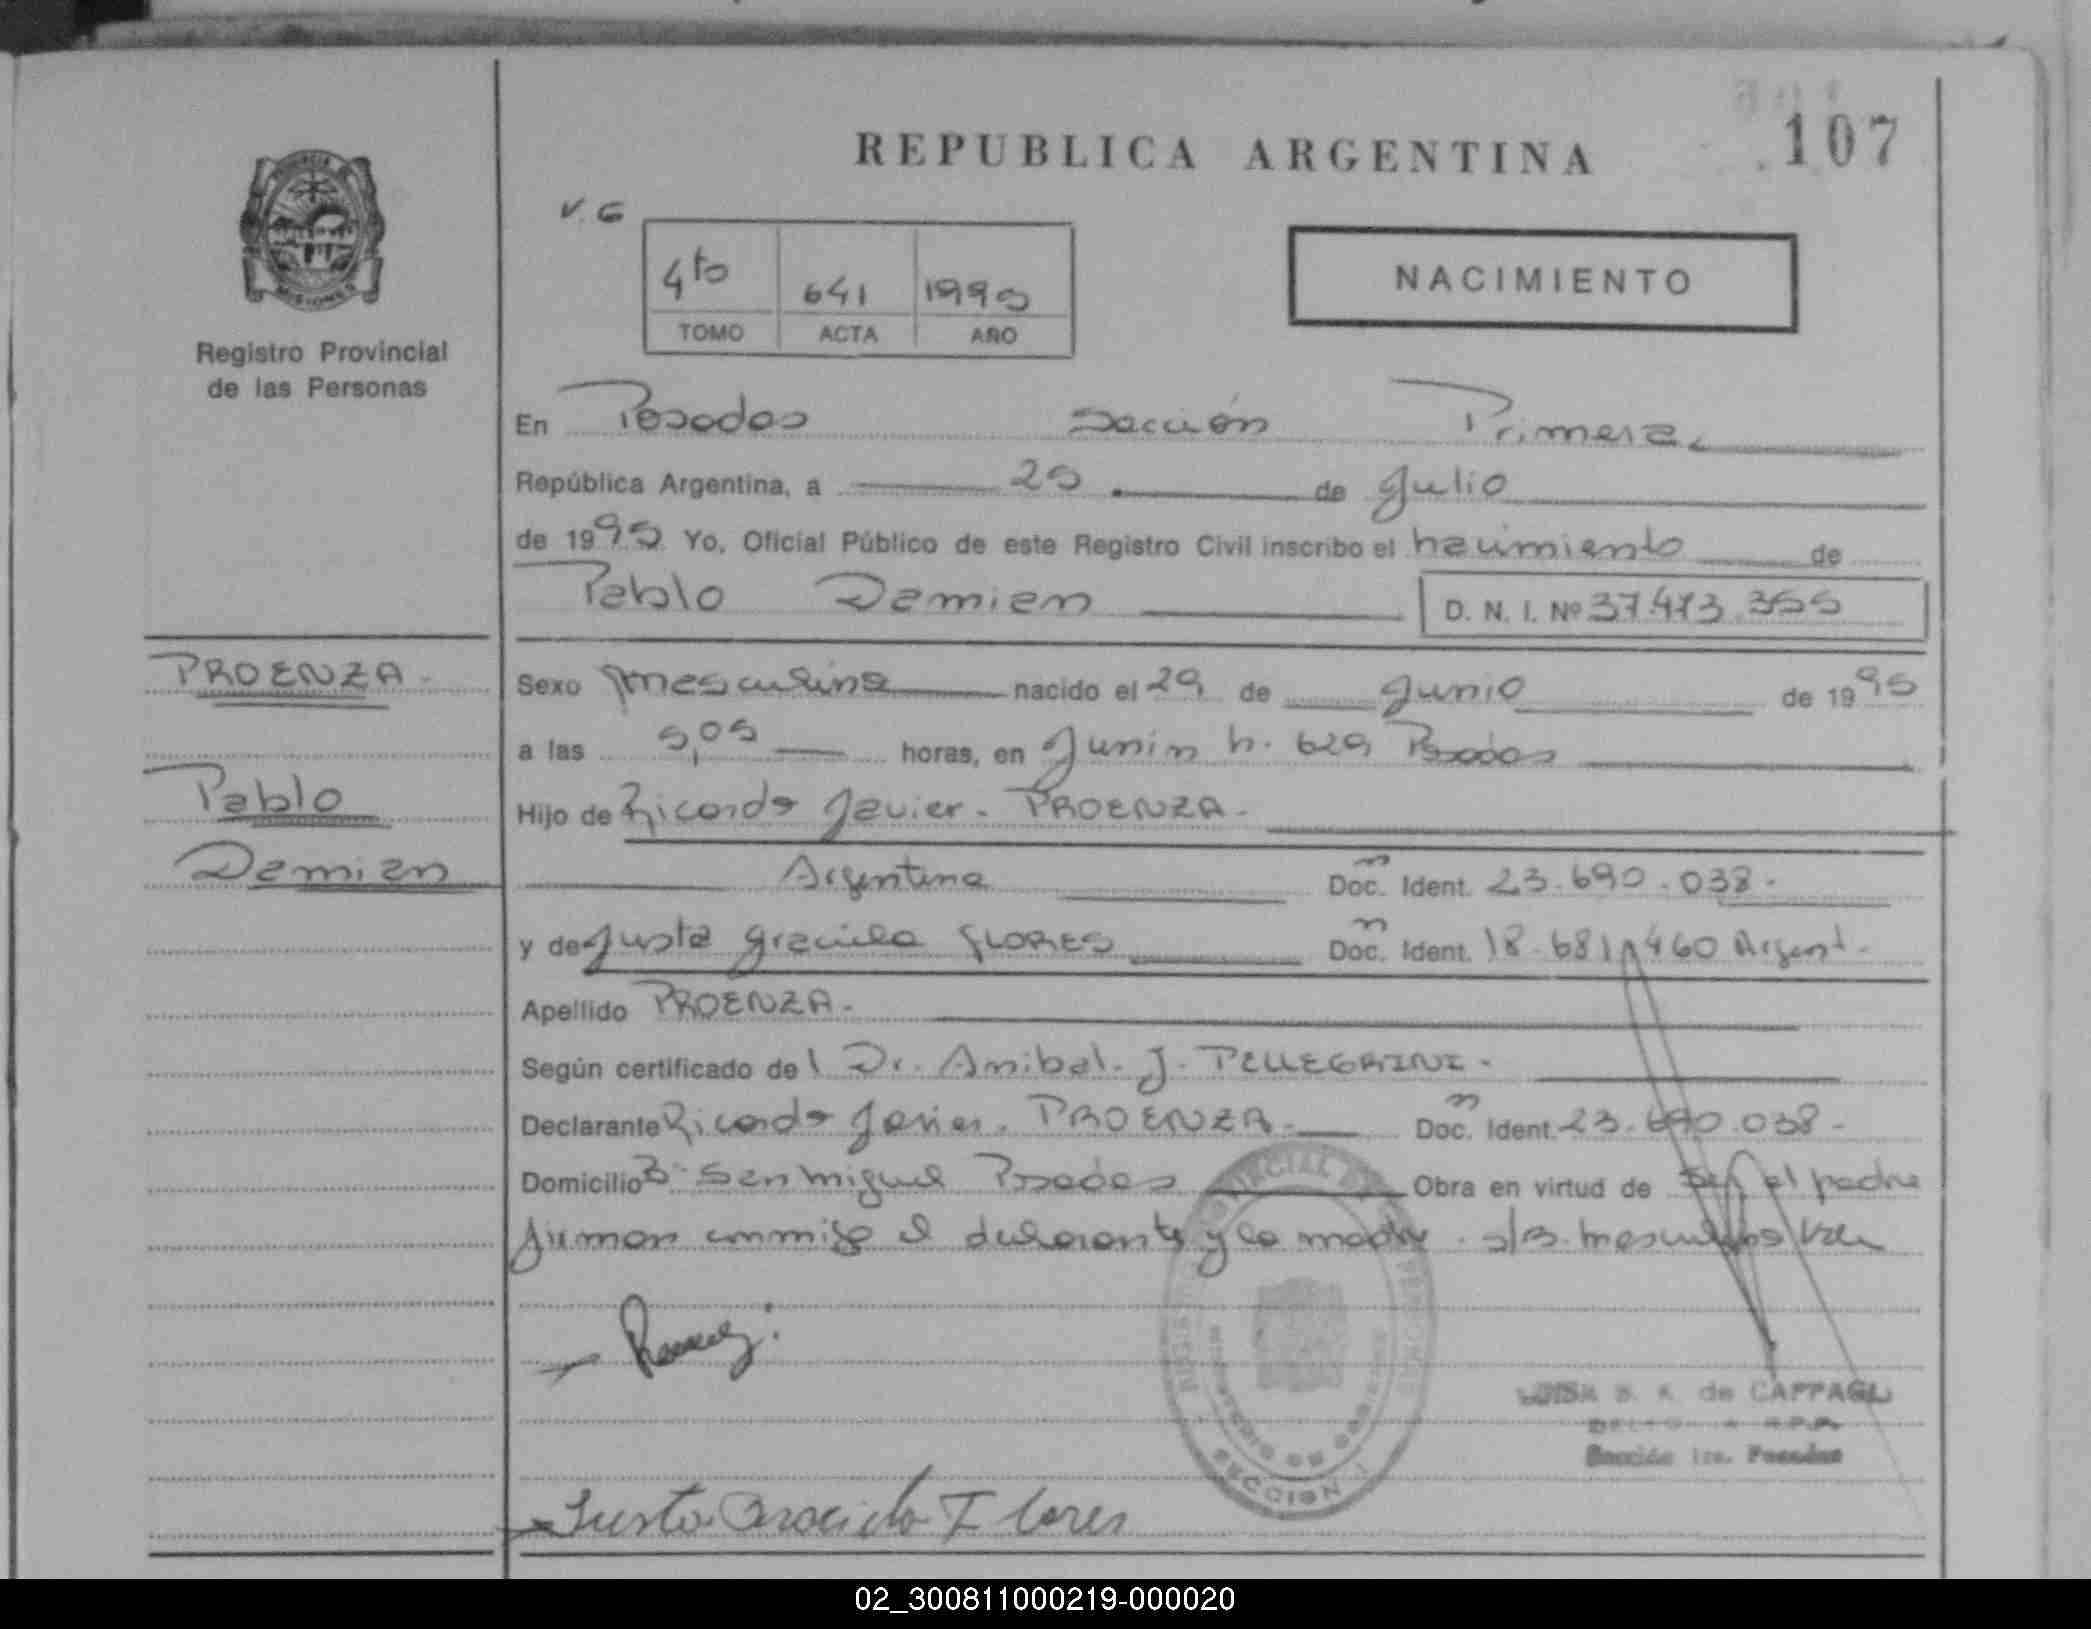 107
REPUBLICA ARGENTINA
V.G
4to 641 1995
TOMO ACTA AÑO
NACIMIENTO
MISIONES
Registro Provincial
de las Personas
En Posadas Sección Primera,
República Argentina, a 25 de Julio
de 1995 Yo, Oficial Público de este Registro Civil inscribo el nacimiento de
Pablo Damian D. N. I. Nº 37.473.355
PROENZA.
Sexo masculino nacido el 29 de Junio de 1995
a las 5,05 horas, en Junin n. 629 Posadas
Pablo
Hijo de Ricardo Javier. PROENZA.
Damian
Argentina Doc. Ident. 23.690.038.
y de Justa Graciela FLORES Doc. Ident. 18.681.460 Argent.
Apellido PROENZA.
Según certificado del Dr. Anibal. J. PELLEGRINI.
Declarante Ricardo Javier. PROENZA. Doc. Ident. 23.690.038-
Domicilio Bº San Miguel Posadas Obra en virtud de ser el padre
firman conmigo el declarante y la madre. s/b. masculino Vale
de CAPPAGLI
Sección 1ra. Posadas
SECCION 1
Justa Graciela Flores
02_300811000219-000020